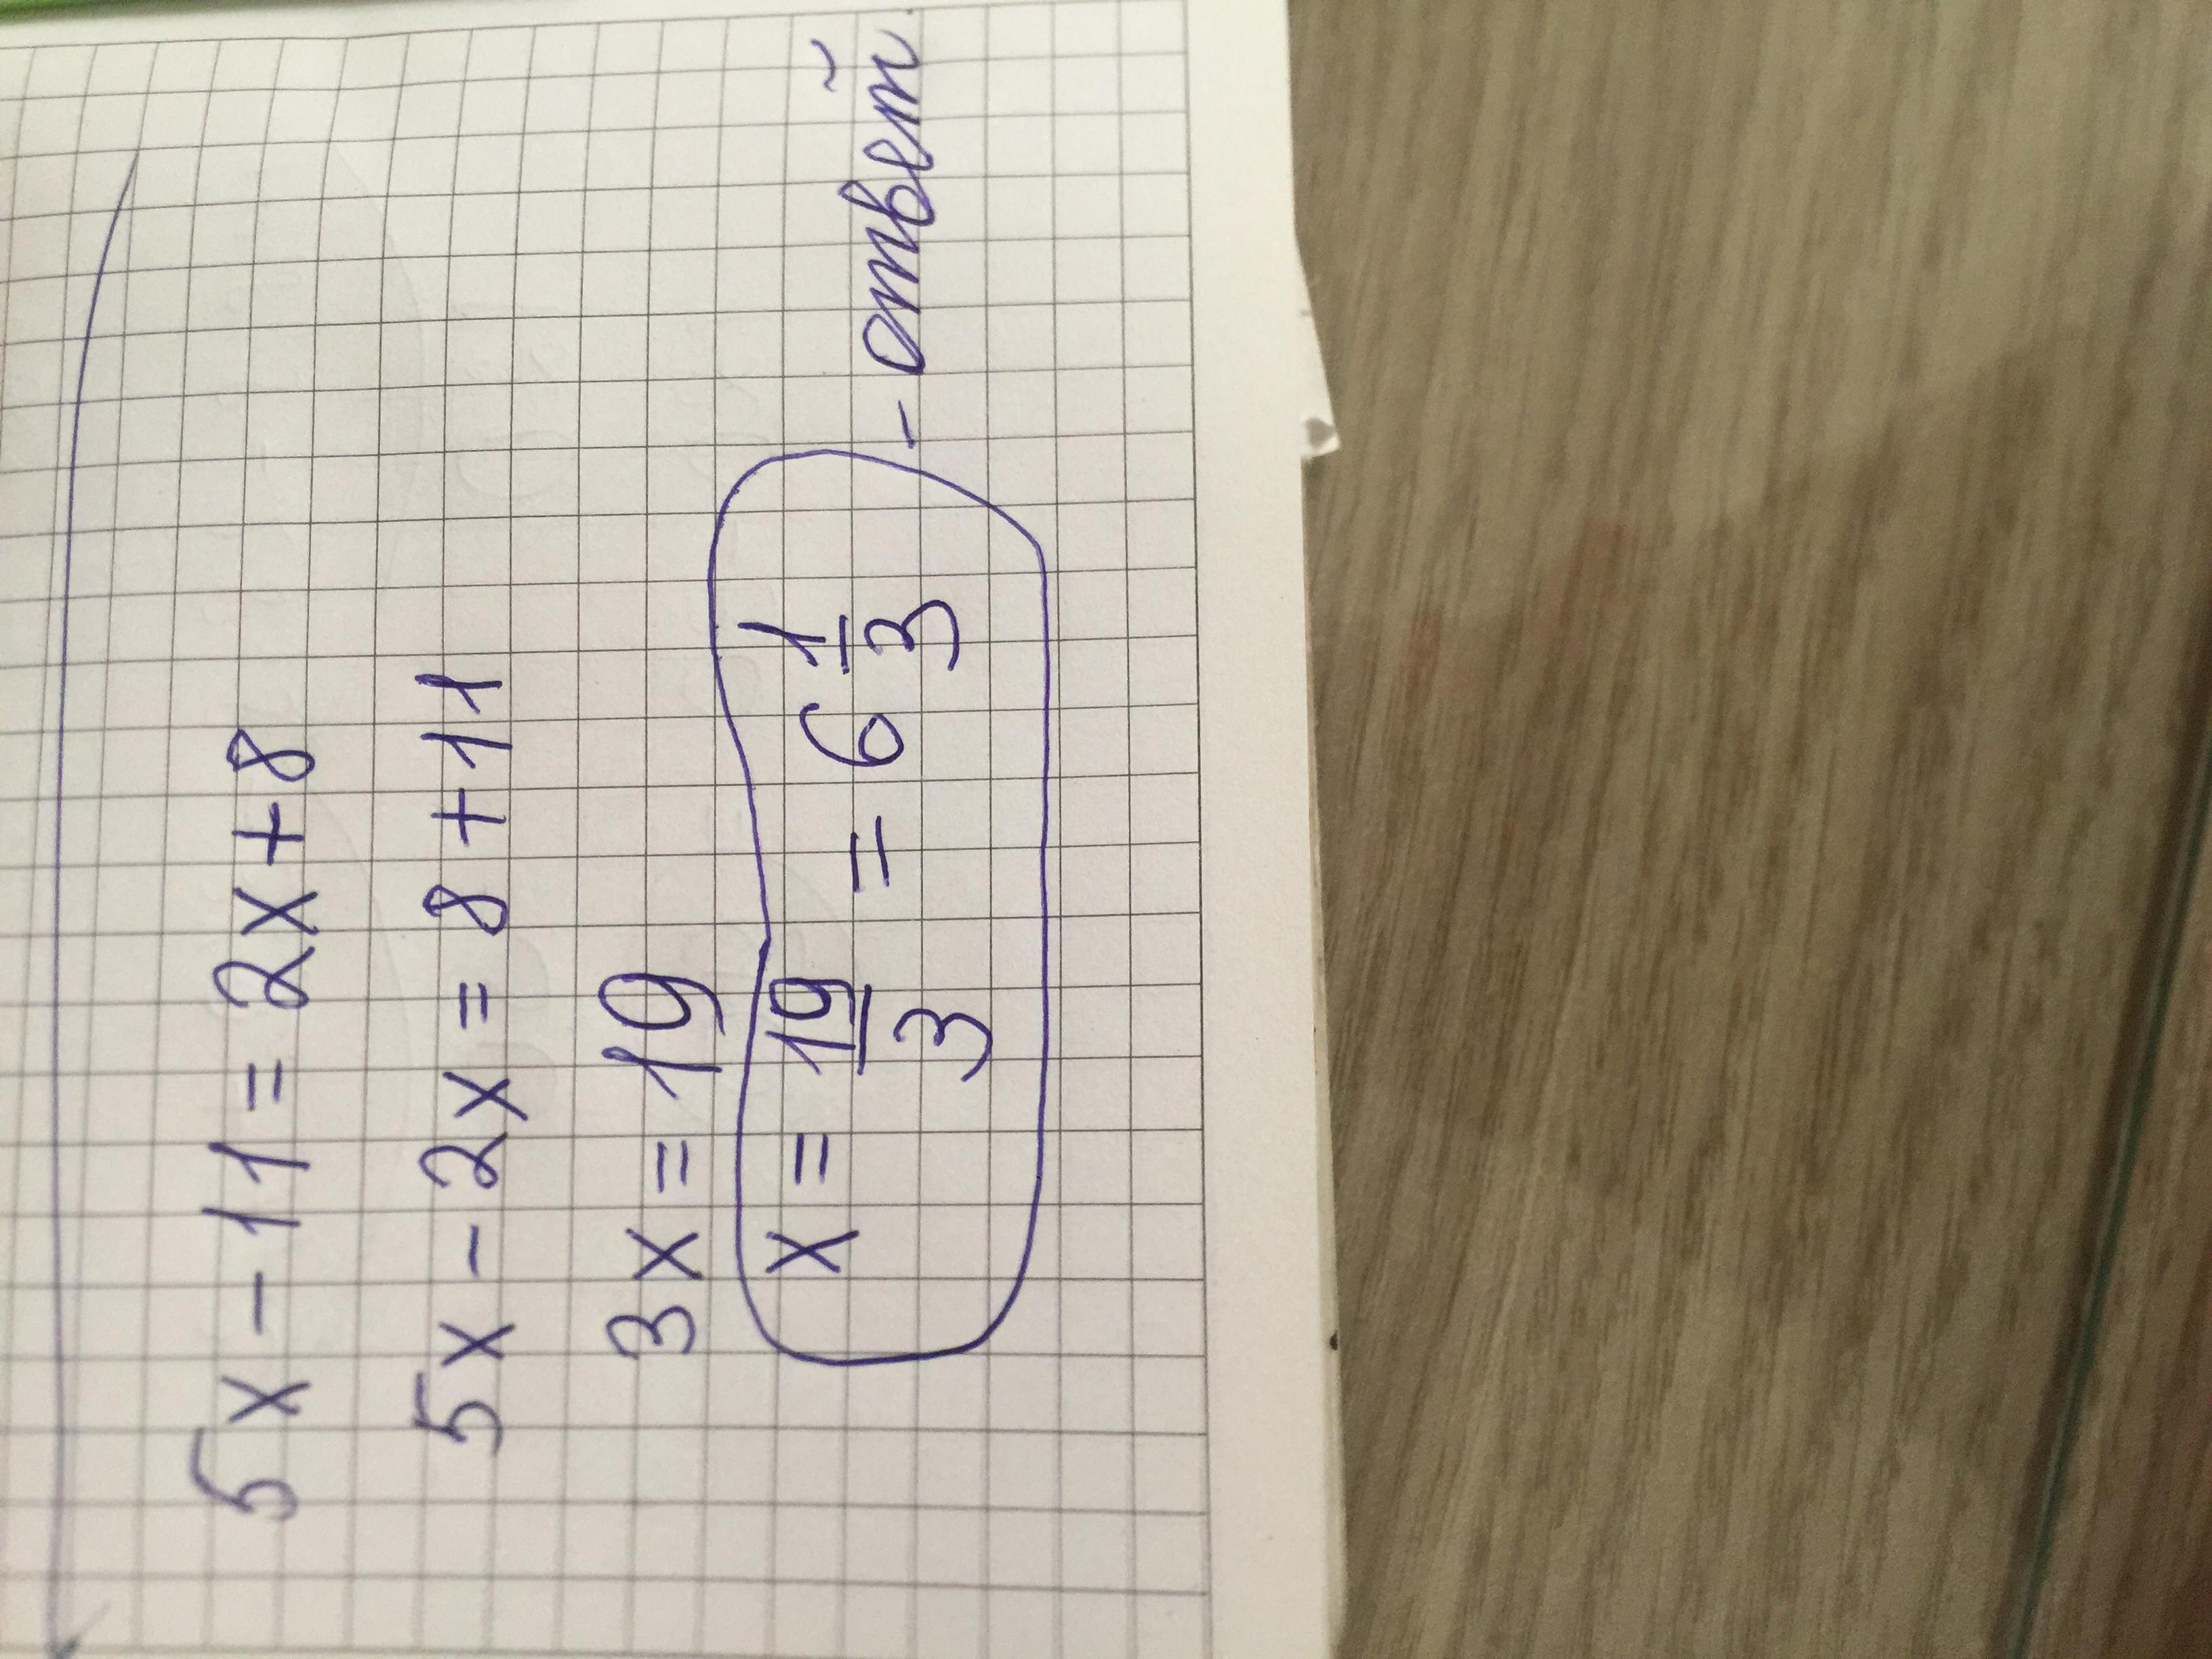 5x - 11 = 2x + 8
5x - 2x = 8 + 11
3x = 19
x = 19/3 = 6 1/3 - ответ.